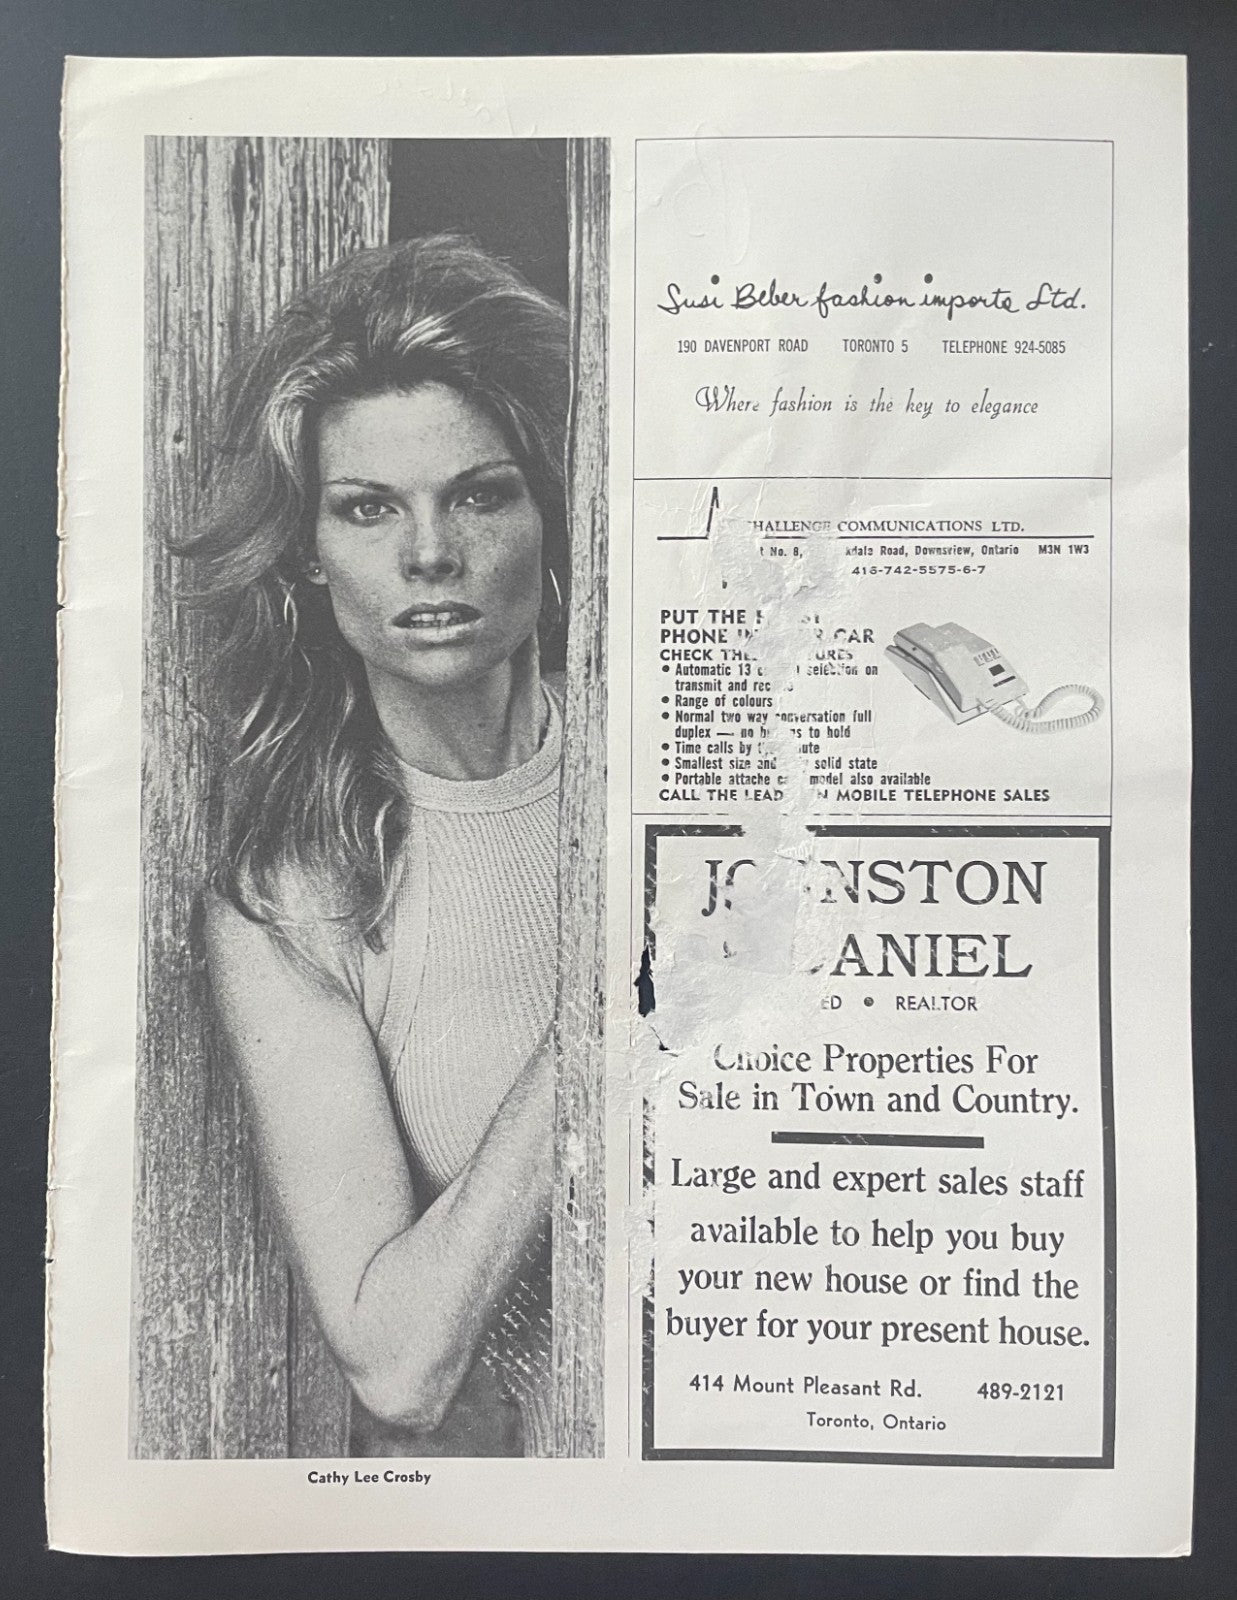 Cathy Lee Crosby
Susi Beber fashion imports Ltd.
190 DAVENPORT ROAD TORONTO 5 TELEPHONE 924-5085
Where fashion is the key to elegance
HALLENGE COMMUNICATIONS LTD.
No. 8, Road, Downsview, Ontario M3N 1W3
416-742-5575-6-7
PUT THE
PHONE CAR
CHECK
• Automatic 13 selection on
transmit and
• Range of colours
• Normal two way conversation full
duplex — no to hold
• Time calls by
• Smallest size and solid state
• Portable attache model also available
CALL THE MOBILE TELEPHONE SALES
JOHNSTON
DANIEL
• REALTOR
Choice Properties For
Sale in Town and Country.
Large and expert sales staff
available to help you buy
your new house or find the
buyer for your present house.
414 Mount Pleasant Rd. 489-2121
Toronto, Ontario